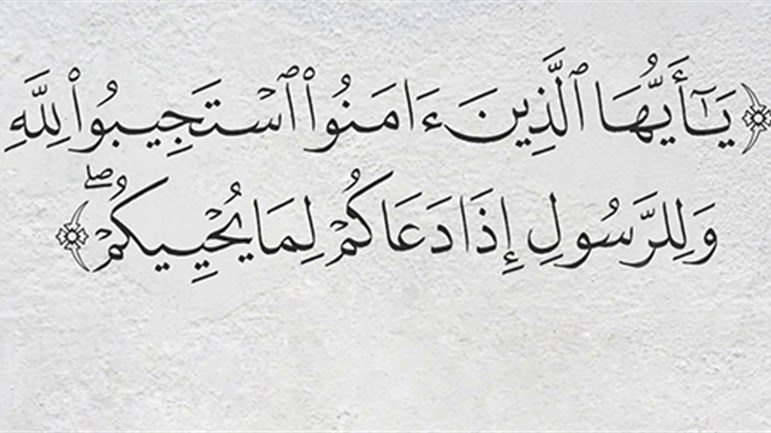 ﴿يَـٰٓأَيُّهَا ٱلَّذِينَ ءَامَنُوا۟ ٱسْتَجِيبُوا۟ لِلَّهِ
وَلِلرَّسُولِ إِذَا دَعَاكُمْ لِمَا يُحْيِيكُمْ ۖ﴾